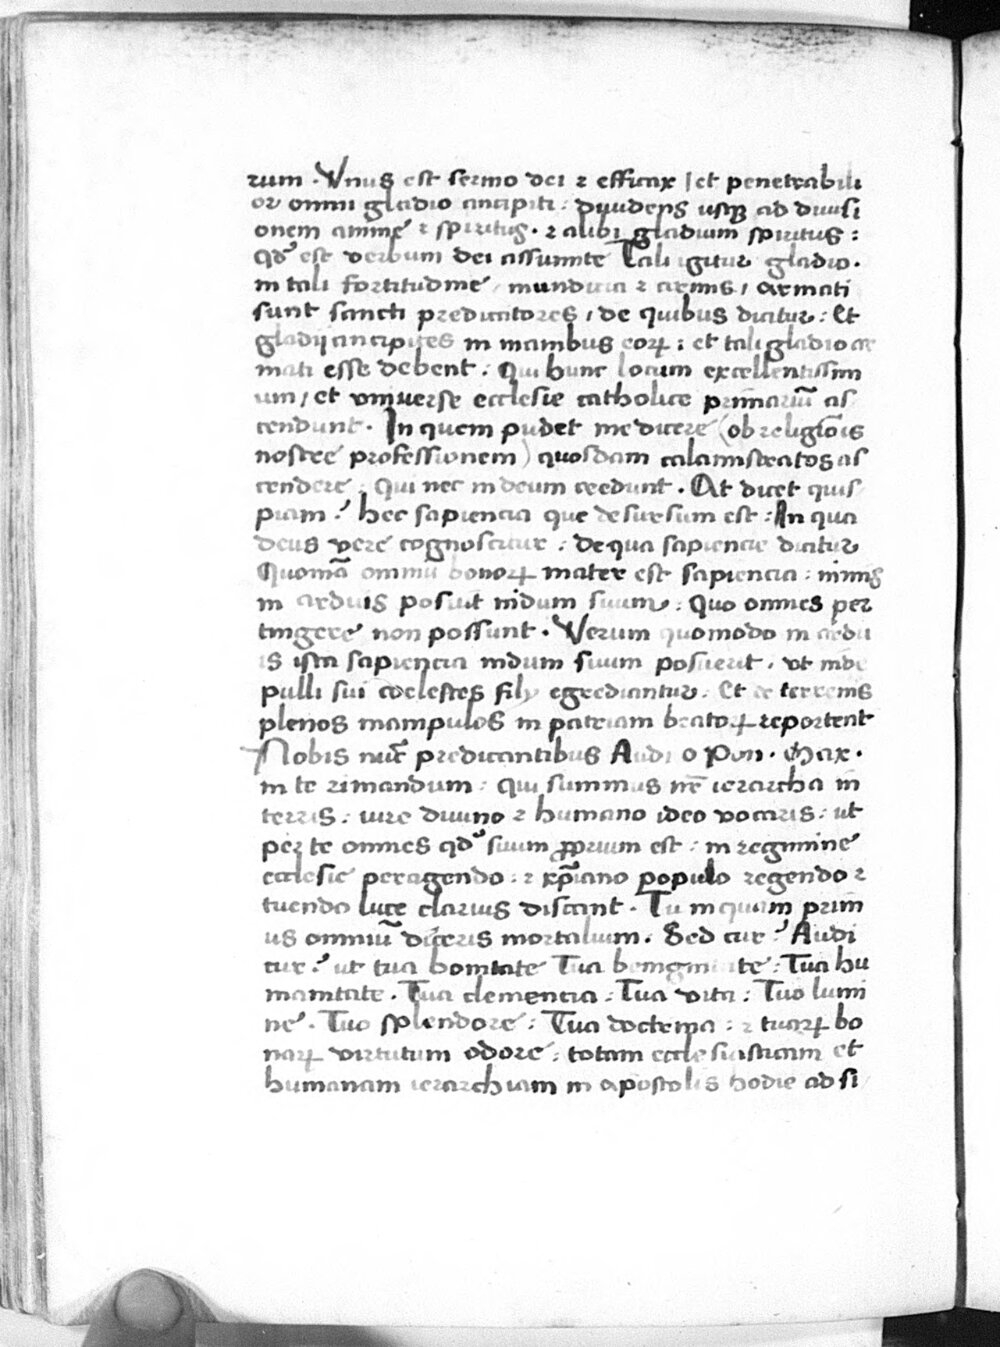 rum . Vnus est sermo dei ⁊ efficax / et penetrabili
or omni gladio ancipiti : dyudens usqꝫ ad diuisi
onem anime ⁊ spiritus . ⁊ alibi gladium spiritus :
qđ est verbum dei assumite Tali igitur gladio .
in tali fortitudine / mundicia ⁊ armis / armati
sunt sancti predicatores / de quibus dicitur : Et
gladij ancipites in manibus eoꝝ : et tali gladio ar
mati esse debent . Qui hunc locum excellentissim
um / et vniuerse ecclesie catholice primariū as
cendunt . In quem pudet me dicere (ob religiōis
nostre professionem) quosdam calamistratos as
cendere . Qui nec in deum credunt . At dicet quis
piam ? hec sapiencia que desursum est : In qua
deus vere cognoscitur : de qua sapiencie dicitur
Quoniā omniū bonoꝝ mater est sapiencia : nimis
in arduis posuit nidum suum : Quo omnes per
tingere non possunt . Verum quomodo in ardu
is ista sapiencia nidum suum posuerit . vt inde
pulli sui coelestes filij egrediantur : Et de terrenis
plenos manipulos in patriam beatoꝝ reportent
Nobis nūc predicantibus Audi o Pon . Max .
in te rimandum : qui summus nr̄e ierarcha in
terris : iure diuino ⁊ humano ideo vocaris : ut
per te omnes qđ suum ꝓprium est : in regimine
ecclesie peragendo : ⁊ xp̄iano populo regendo ⁊
tuendo luce clarius discant . Tu inquam prim
us omniū diceris mortalium . Sed cur ? Audi
cur ? ut tua bonitate Tua benignitate : Tua hu
manitate . Tua clemencia : Tua vita : Tuo lumi
ne . Tuo splendore : Tua doctrina : ⁊ tuaꝝ bo
naꝝ virtutum odore : totam ecclesiasticam et
humanam ierarchiam in apostolis hodie ad si